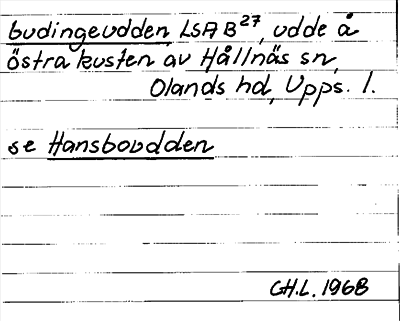 budingeudden LSA B27, udde å
östra kusten av Hållnäs sn,
Olands hd, Upps. l.
se Hansboudden
GH.L. 1968